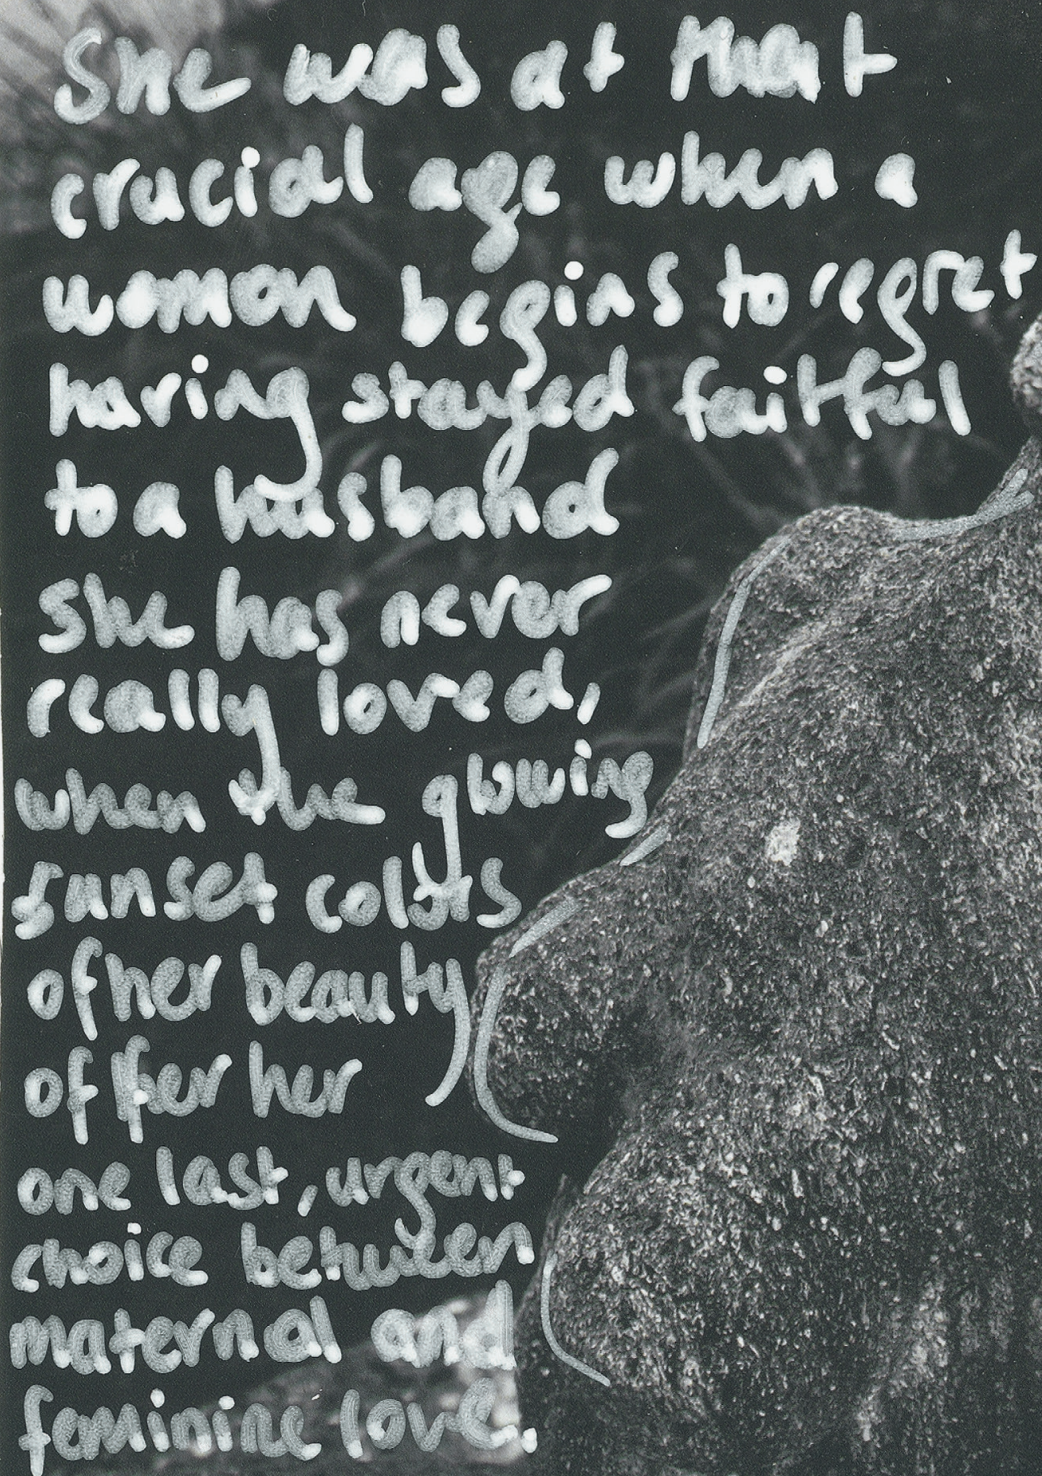 She was at that
crucial age when a
woman begins to regret
having stayed faithful
to a husband
she has never
really loved,
when the glowing
sunset colors
of her beauty
offer her
one last, urgent
choice between
maternal and
feminine love.